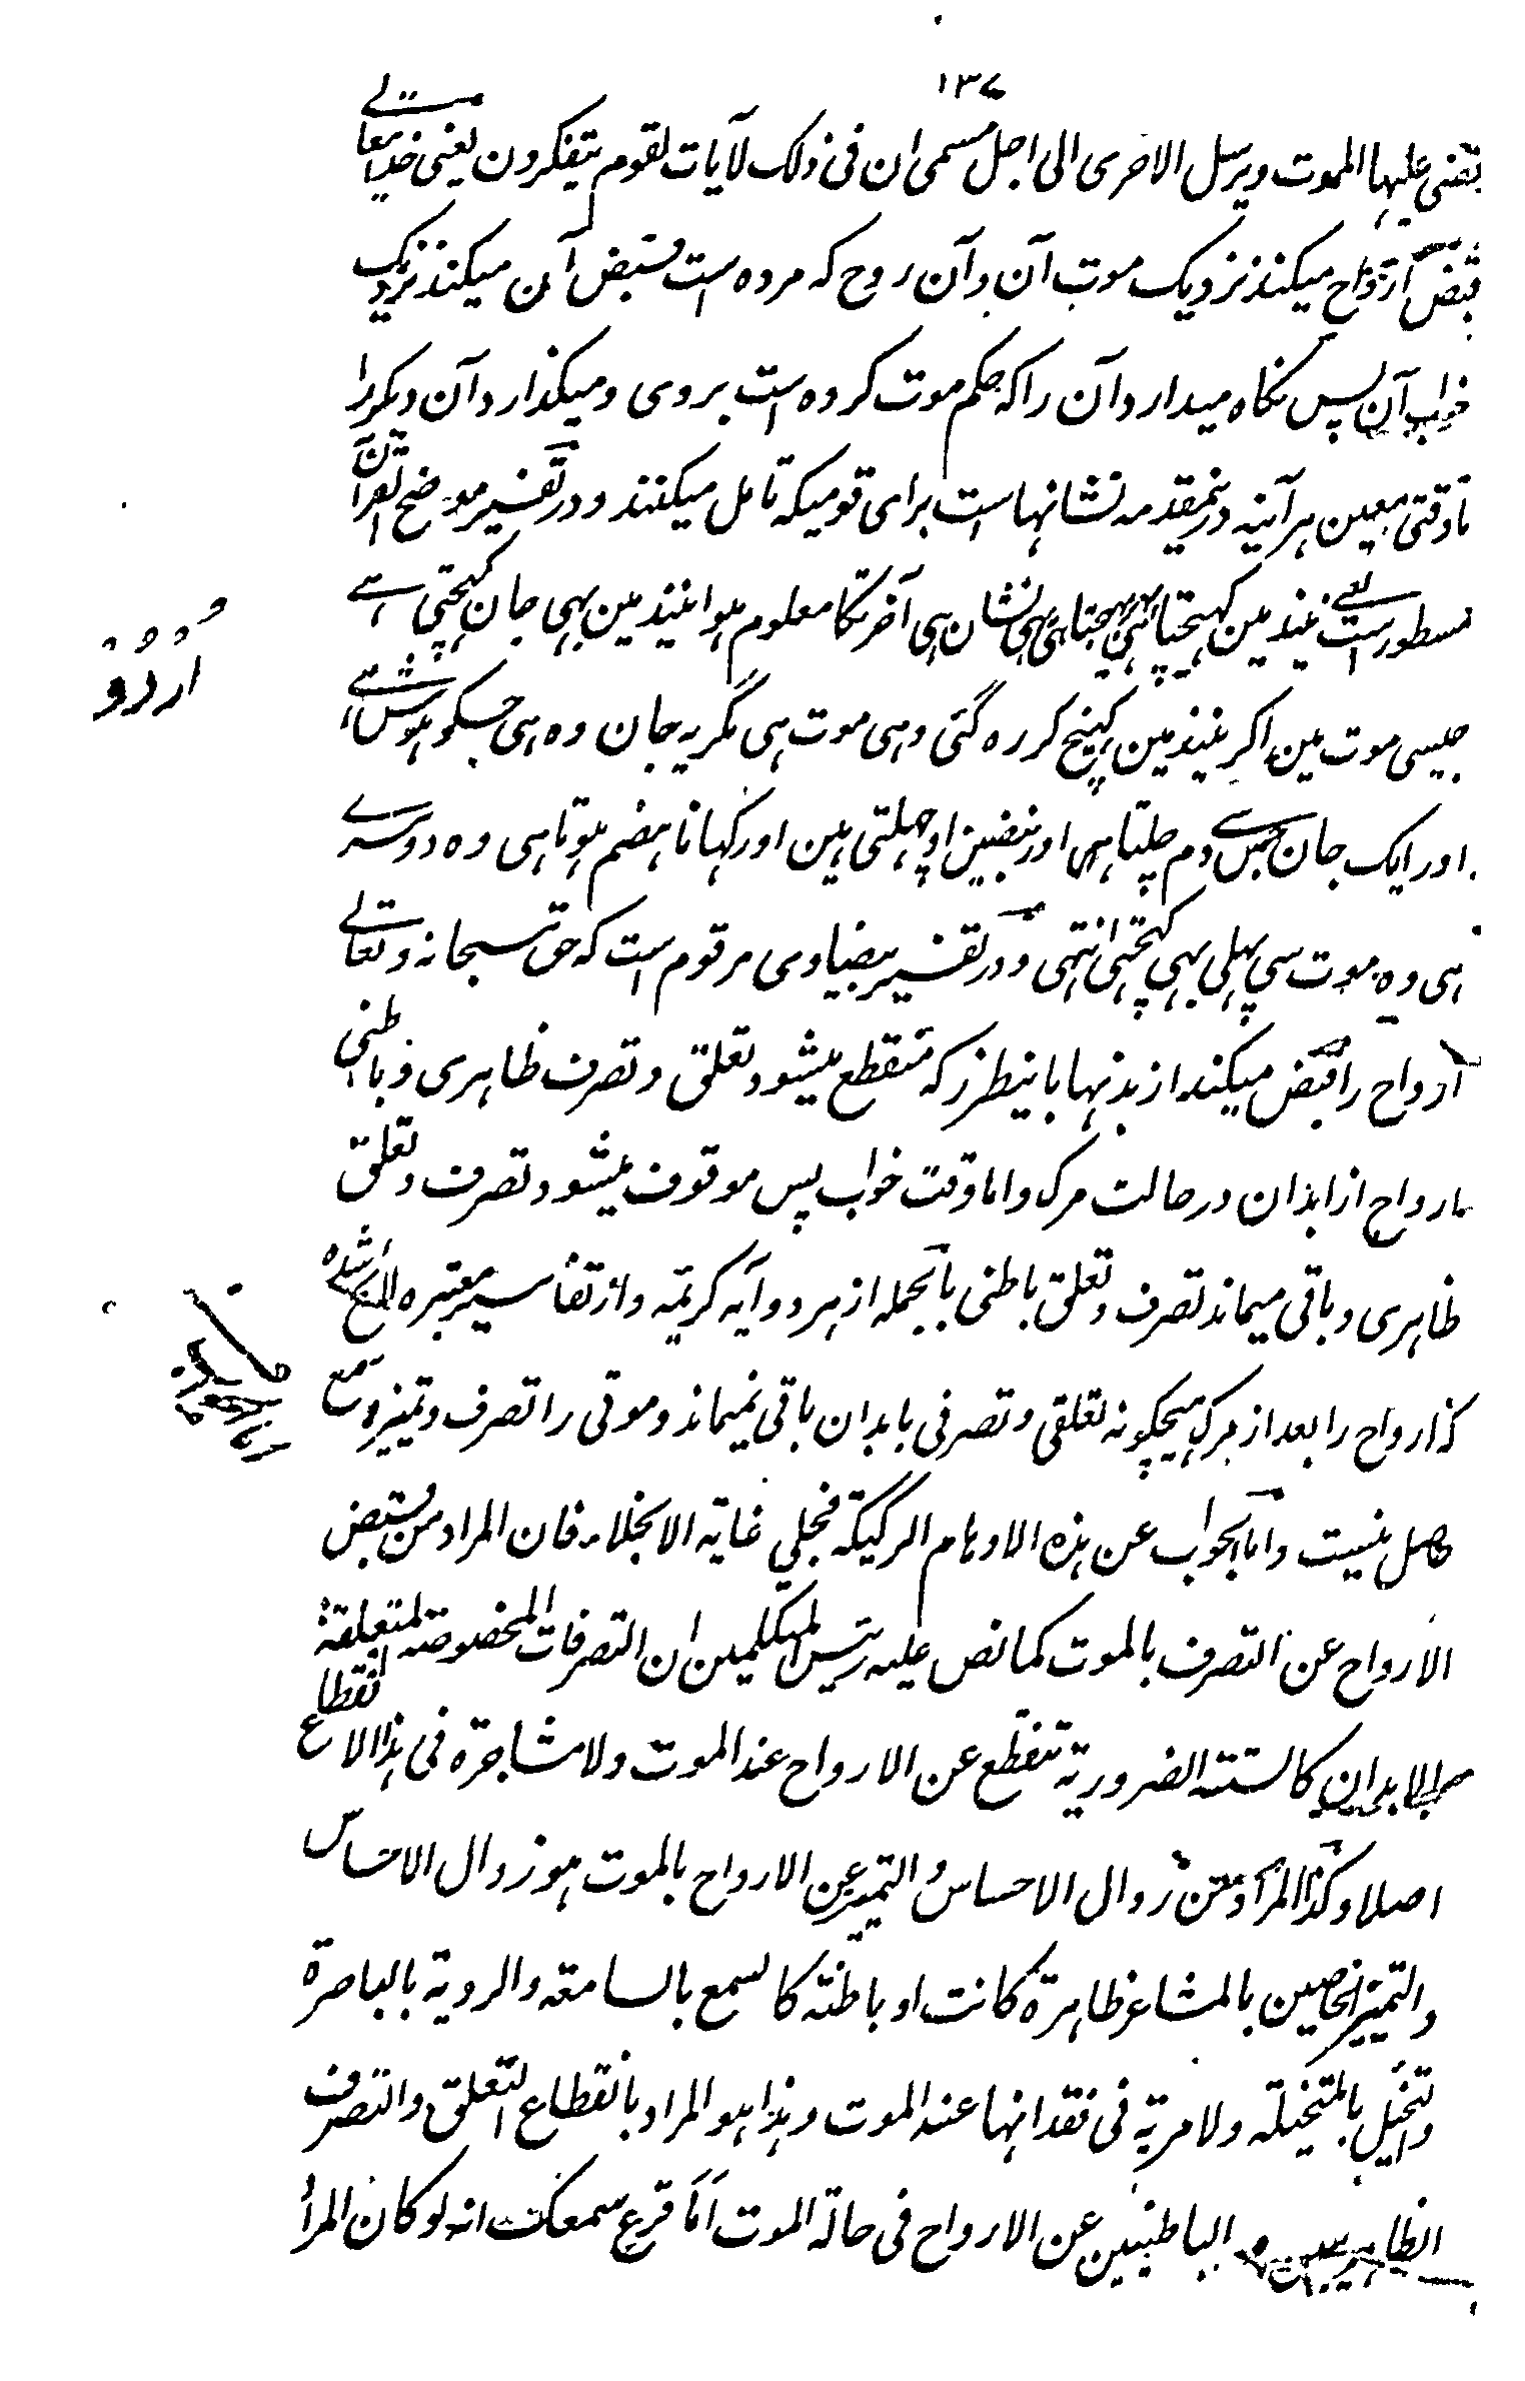 ۱۳۷
قضی علیها الموت ویرسل الاخری الی اجل مسمی ان فی ذلک لآیات لقوم یتفکرون یعنی خدایتعالے
قبض ارواح میکند نزدیک موت آن وآن روح که مرده است قبض آن میکند نزدیک
خواب آن پس نگاه میدارد آن را که حکم موت کرده است بروی ومیگذارد آن دیگر را
تا وقتی معین هر آئینه درینمقدمه نشانهاست برای قومیکه تامل میکنند ودر تفسیر موضح القرآن
مسطور است یعنے نیند مین کهینچتا هی بهیجتا هی یهی نشان هی آخرتکا معلوم هوا نیند مین بهی جان کهنچتی هے
جیسی موت مین اکر نیند مین کهینچ کر ره گئی وهی موت هی مگر یه جان وه هی جسکو هوش کهتے
اور ایک جان جس سے دم چلتا هی اور نبضین اوچهلتی هین اور کهانا هضم هوتا هی وه دوسرے
هی وه موت سی پهلی نهی کهنچتی انتهی ودر تفسیر بیضاوی مرقوم است که حق سبحانه وتعالے
ارواح را قبض میکند از بدنها باینطرز که منقطع میشود تعلق وتصرف ظاهری وباطنی
ارواح از ابدان در حالت مرک واما وقت خواب پس موقوف میشود تصرف وتعلق
ظاهری وباقی میماند تصرف وتعلق باطنی بالجمله از هر دو آیه کریمه واز تفاسیر معتبره لائح شده
که ارواح را بعد از مرک هیچکونه تعلقی وتصرفی بابدان باقی نمیماند وموتی را تصرف وتمیز وسمع
حاصل نیست واما الجواب عن هذه الاوهام الرکیکة فجلی غایة الانجلاء فان المراد من قبض
الارواح عن التصرف بالموت کما نص علیه رئیس المتکلمین ان التصرفات المخصوصة المتعلقة
بالابدان کالستة الضروریة تنقطع عن الارواح عند الموت ولا مشاجرة فی هذا الانقطاع
اصلا وکذا المراد من زوال الاحساس والتمیز عن الارواح بالموت هو زوال الاحساس
والتمیز الخاصین بالمشاعر ظاهرة کانت او باطنة کالسمع بالسامعة والرویة بالباصرة
والتخیل بالمتخیلة ولا مریة فی فقدانها عند الموت وهذا هو المراد بانقطاع التعلق والتصرف
الظاهریین والباطنیین عن الارواح فی حالة الموت اما قرع سمعک انه لو کان المراد
اُردُو